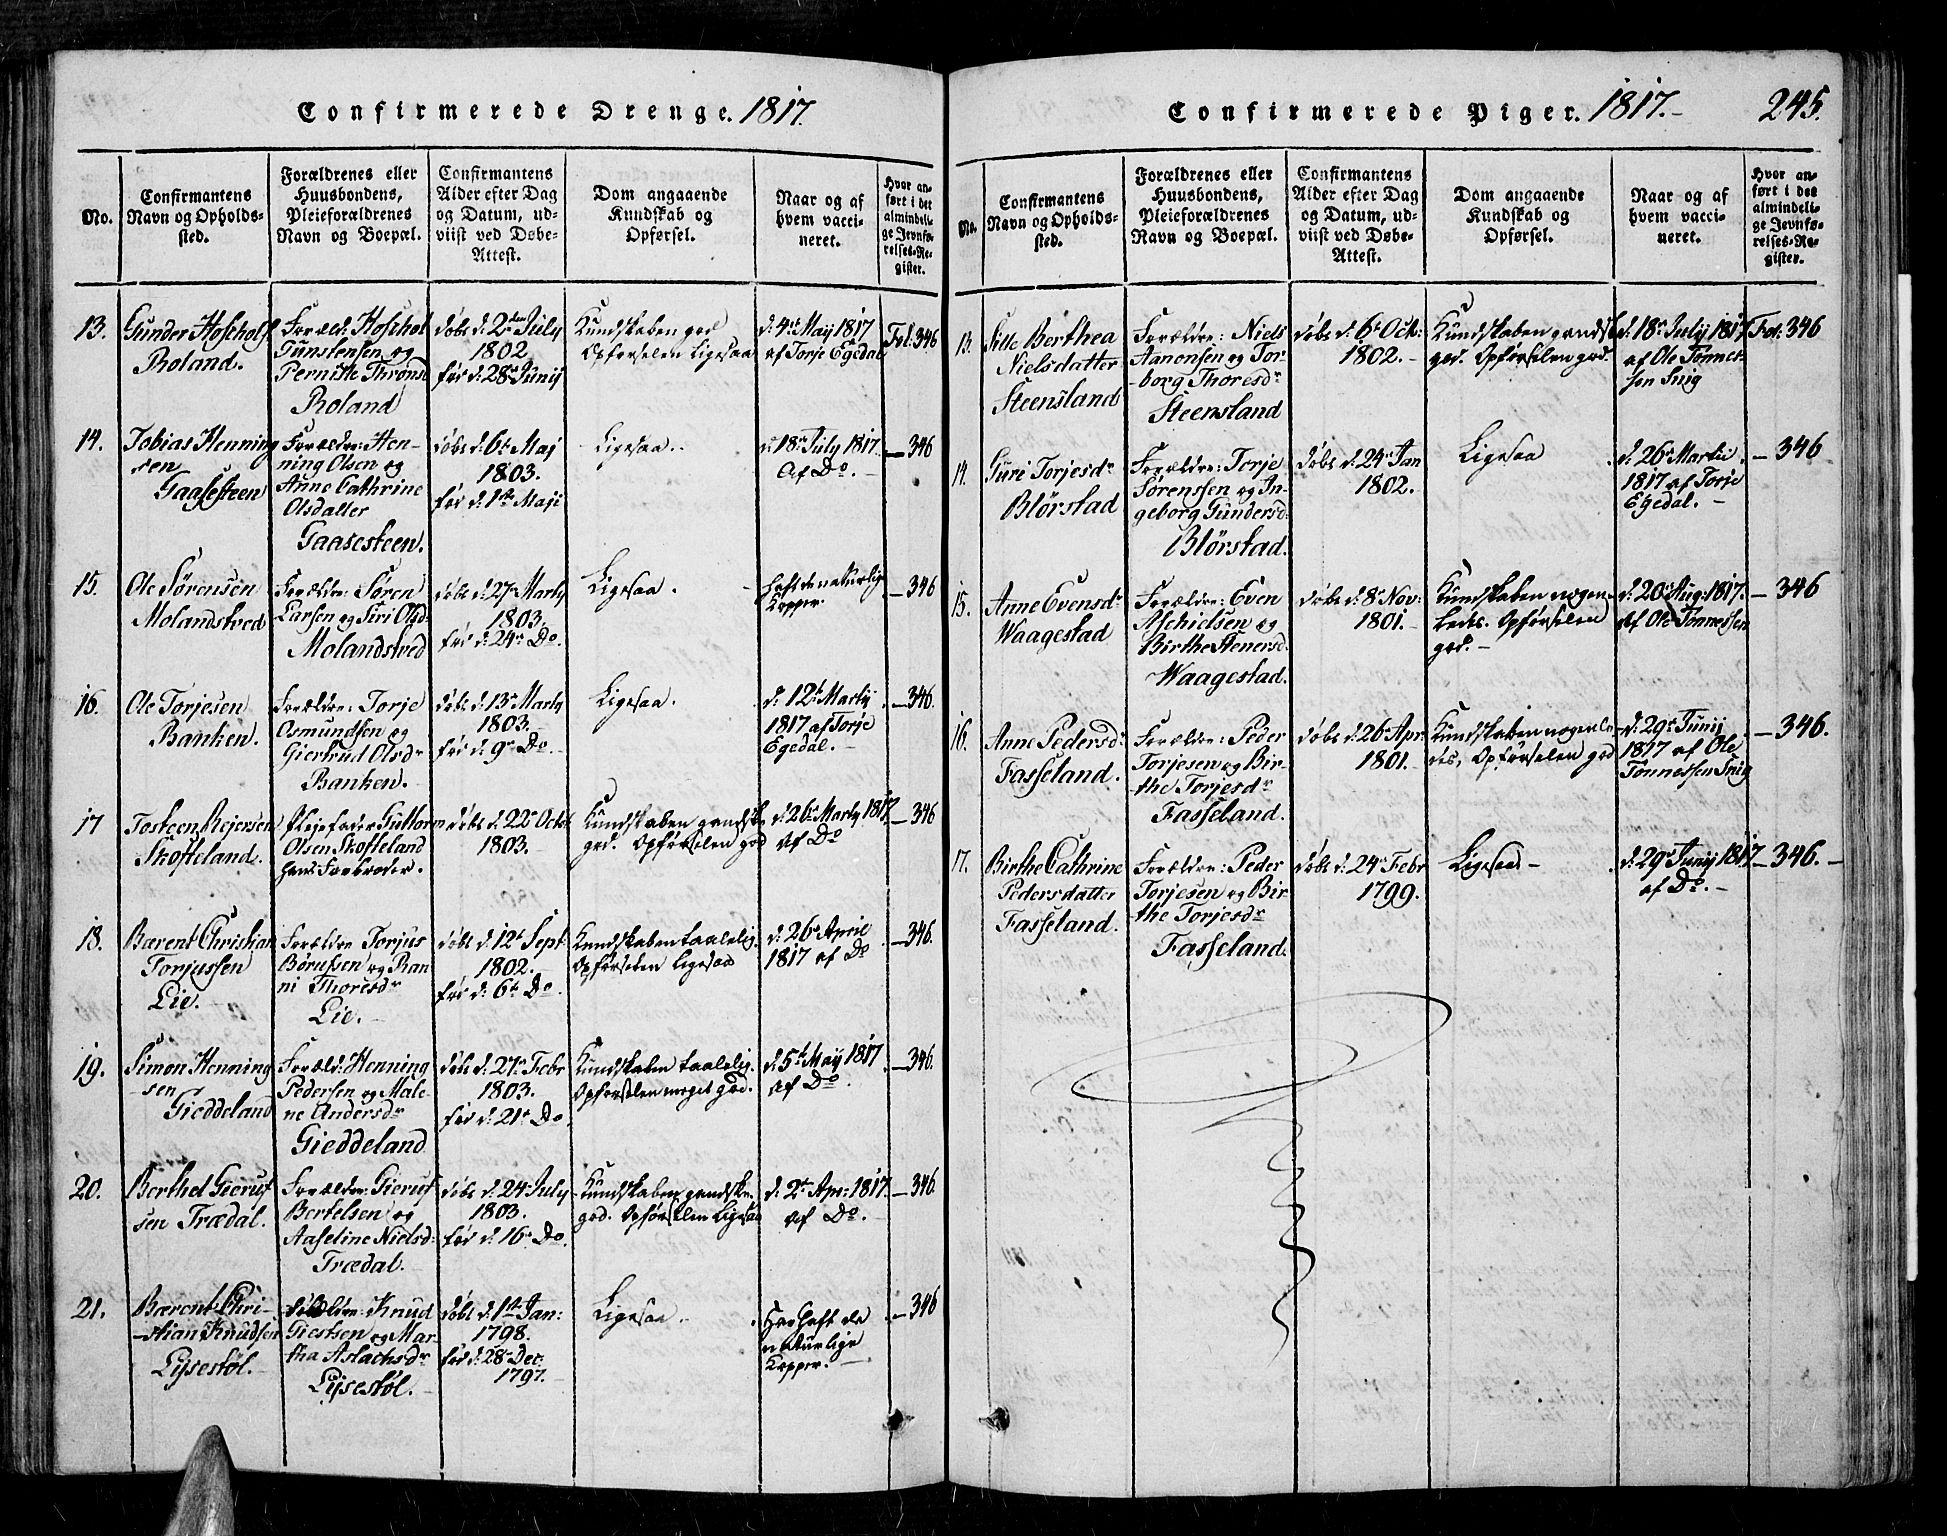 Confirmerede Drenge. 1817.
No.
Confirmantens
Navn og Opholds-
sted.
Forældrenes eller
Huusbondens,
Pleieforældrenes
Navn og Boepæl.
Confirmantens
Alder efter Dag
og Datum, ud-
viist ved Døbe-
Attest.
Dom angaaende
Kundskab og
Opførsel.
Naar og af
hvem vacci-
neret.
Hvor an-
ført i det
almindeli-
ge Jevnfø-
relses-Re-
gister.
13.
Gunder Hoscholf
Roland.
Foræld: Hoschol
Gunstensen og
Pernille Thronsd
Roland
døbt d: 2den July
1802
før d: 28de Junij
Kundskaben god
Opførselen Ligesaa
d. 4de May 1817
af Torje Egedal
Fol: 346
14.
Tobias Henning
sen
Gaasesteen
Forældre: Hen-
ning Olsen og
Anne Cathrine
Olsdatter
Gaasesteen.
døbt d: 6te Maj
1803.
før d: 1ste Maji
Ligesaa.
d 18de July 1817.
Af Do. -
- 346
15.
Ole Sørensen
Molandsved
Forældre: Søren
Larsen og Siri Olsd
Molandsved
døbt d: 27de Marty
1803.
før d: 24de Do.
Ligesaa. -
haft de naturlige
Kopper.
- 346
16.
Ole Torjesen
Banken.
Forældre: Torje
Osmundsen og
Giertrud Olsdr
Banken.
døbt d: 13de Marty
1803. -
før d: 9de Do. -
Ligesaa.
d. 12te Marty
1817 af Torje
Egedal. -
- 346.
17
Tosteen Rejersen
Skofteland.
Plejefader Guttorm
Olsen Skofteland
hans Farbroder.
døbt d: 22de Octob
1803. -
Kundskaben gandske
god. Opførselen god
d: 26de Marty 1817
af Do
- 346
18.
Bærent Christian
Torjussen
Lie. -
Forældre Torjus
Børufsen og Ran
ni Thoresdr
Lie. -
døbt d: 12te Sept:
1802. -
før d: 6te Do.
Kundskaben taalelig.
Opførselen Ligesaa
d. 26de April
1817 af Do
- 346.
19.
Simon Henning
-sen
Gieddeland
Foræld: Henning
Pedersen og Male-
ne Andersdr
Gieddeland
døbt d. 27de Febr
1803.
før d: 21de Do
Kundskaben taalelig.
Opførselen meget god.
d. 5te May 1817
af Do.
- 346.
20.
Berthel Gieruf
sen Trædal.
Forældre: Gieruf
Bertelsen og
Aaseline Nielsd:
Trædal. -
døbt d. 24de July
1803.
før d: 16de Do.
Kundskaben gandske
god. Opførselen Ligesaa
d. 2den Apr: 1817.
af Do. -
- 346.
21.
Bærent Chri-
-stian Knudsen
Lysestøl. -
Forældre: Knud
Giestsen og Mar-
tha Aslachsdr
Lysestøl. -
døbt d: 1ste Jan:
1798.
før d: 28de Dec.
1797. -
Ligesaa.
Har haft de
naturlige
Kopper. -
- 346
Confirmerede Piger. 1817. -
245.
No.
Confirmantens
Navn og Opholds-
sted.
Forældrenes eller
Huusbondens,
Pleieforældrenes
Navn og Boepæl.
Confirmantens
Alder efter Dag
og Datum, ud-
viist ved Døbe-
Attest.
Dom angaaende
Kundskab og
Opførsel.
Naar og af
hvem vacci-
neret.
Hvor an-
ført i det
almindeli-
ge Jevnfø-
relses-Re-
gister.
13.
Sille Berthea
Nielsdatter
Steensland
Forældre: Niels
Aanonsen og Tor-
-borg Thoresdr
Steensland
døbt d: 6te Oct:
1802. -
Kundskaben gandske
god. Opførselen god.
d. 18de July 1817
af Ole Tønnes-
sen Snig
Fol: 346
14.
Guri Torjesdr
Blørstad
Forældre: Torje
Sørenssen og In-
geborg Gundersd:
Blørstad.
døbt d. 24de Jan
1802.
Ligesaa
d. 26de Martii
1817 af Torje
Egedal. -
- 346
15.
Anne Evensdr
Waagestad
Forældre: Even
Aschielsen og
Birthe Stenersd.
Waagestad.
døbt d. 8de Nov:
1801. -
Kundskaben nogen-
ledes. Opførselen
god. -
d. 20de Aug: 1817.
af Ole Tønnessen
- 346
16.
Anne Pedersdr
Fasseland.
Forældre: Peder
Torjesen og Bir-
the Torjesdr
Fasseland.
døbt d. 26de Apr.
1801. -
Kundskaben nogenle-
des, Opførselen god
d. 29de Junij
1817 af Ole
Tønnessen Snig
- 346.
17.
Birthe Cathrine
Pedersdatter
Fasseland.
Forældre: Peder
Torjesen og Bir-
the Torjesdr
Fasseland.
døbt d. 24de Febr
1799.
Ligesaa -
d. 29de Junij 1817
af Do. -
- 346. -